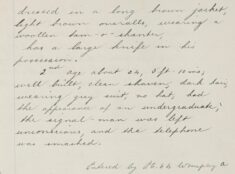 dressed in a long brown jacket,
light brown overalls, wearing a
woollen tam o' shanter,
has a large knife in his
possession.
2nd age about 24, 5ft 10ins;
well built, clean shaven, dark hair,
wearing grey suit, no hat, had
the appearance of an undergraduate;
the signal-man was left
unconscious, and the telephone
was smashed.
by P.C. 44